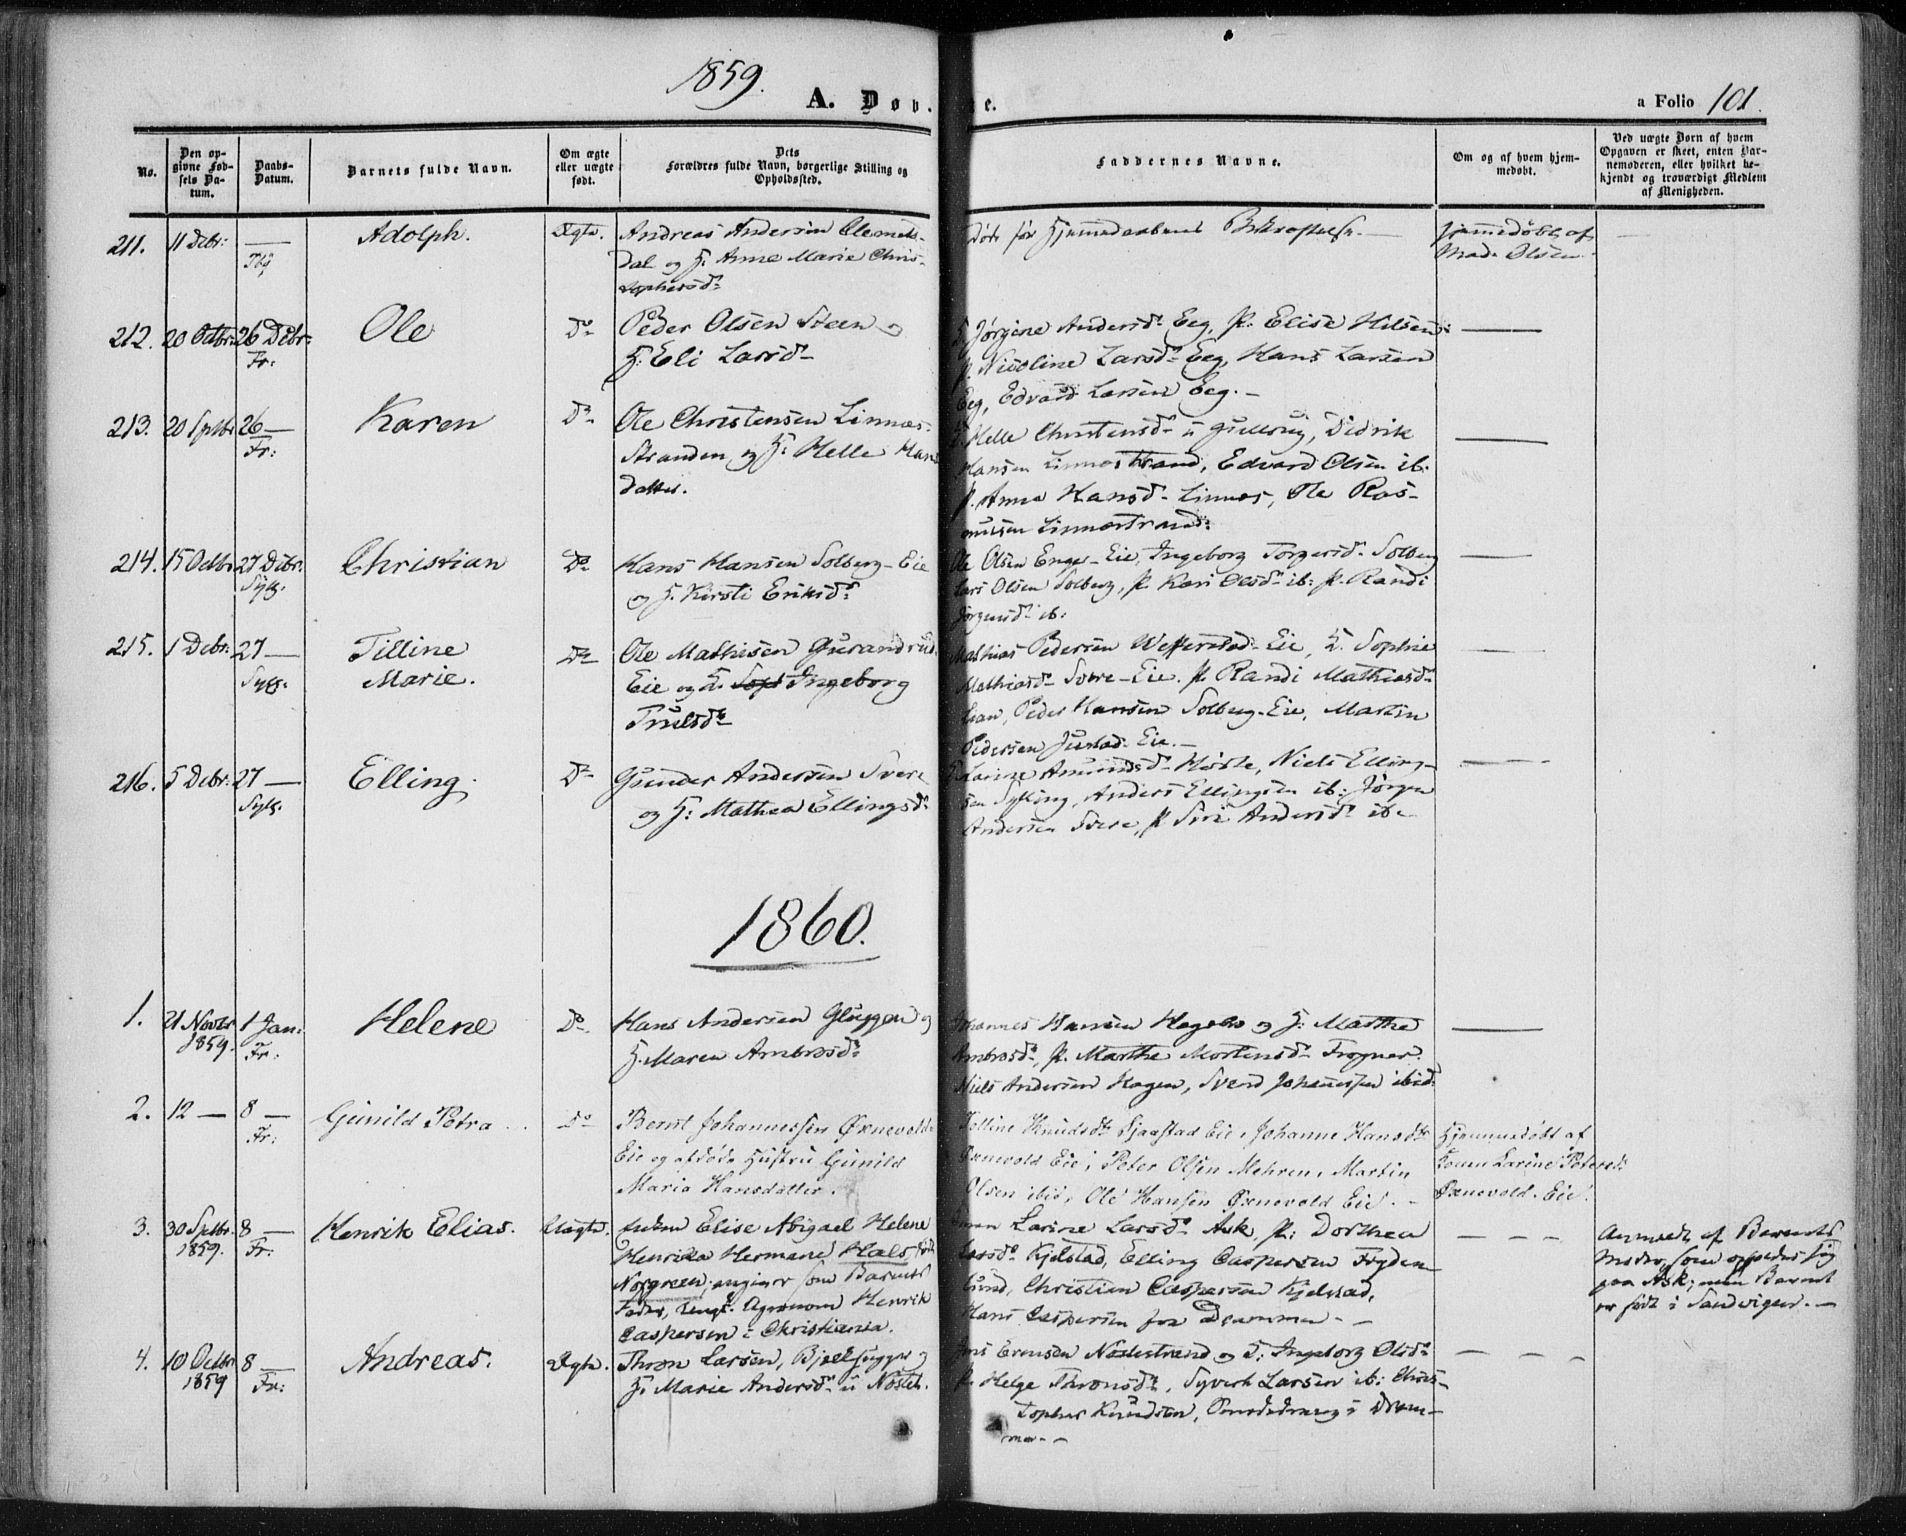 1859.
A. Døb.
te.
a Folio 101.
No.
Den op-
givne Fød-
sels Da-
tum.
Daabs-
Datum.
Barnets fulde Navn.
Om ægte
eller uægte
født.
Dets
Forældres fulde Navn, borgerlige Stilling og
Opholdssted.
Faddernes Navne.
Om og af hvem hjem-
medøbt.
Ved uægte Børn af hvem
Opgaven er skeet, enten Bar-
nemoderen, eller hvilket be-
kjendt og troværdigt Medlem
af Menigheden.
211. 11 Debr: — Adolph. Ægte. Andreas Andersen Clemets-
dal og H. Anne Marie Chris-
tophersd.
Død før Hjemmedaabens Bekræftelse. —
Hjemmedøbt af
Mads Olsen.
212. 20 Octbr: 26 Debr: Fr: Ole Do Peder Olsen Steen og
H. Eli Larsd.
H. Jørgine Andersd. Eeg, P. Elise Nilsen:
P. Nicoline Larsd. Eeg, Hans Larsen
Eeg, Edvard Larsen Eeg. —
213. 20 Sptbr 26 — Fr: Karen Do Ole Christensen Linnes-
Stranden og H: Helle Hans
datter.
Helle Christensd. Gullaug, Didrik
Hansen Linnestrand, Edvard Olsen ib:
P. Anne Hansd. Linnes, Ole Ras-
mussen Linnestrand:
214. 15 Octbr 27 Debr: Sylg. Christian Do Hans Hansen Solberg-Eie
og H. Kirsti Eriksd.
Ole Olsen Enge-Eie, Ingeborg Torgersd. Solberg
Lars Olsen Solberg, P. Kari Olsd. ib: P. Randi
Jørgensd. ib:
215. 1 Debr: 27 — Sylg. Tilline
Marie. Do Ole Mathisen Gurandrud
Eie og H. Ingeborg
Trulsd.
Mathias Pedersen Eie, H. Sophie
Mathiasd. Svere-Eie. P. Randi Mathiasd.
Lian, Peder Hansen Solberg-Eie, Martin
Pedersen Justad-Eie. —
216. 5 Debr: 27 — Sylg. Elling Do Gunder Andersen Svere
og H: Mathea Ellingsd.
Karine Amundsd. Hørte, Niels Elling-
sen Sylling, Anders Ellingsen ib: Jørgen
Andersen Svere, P. Siri Andersd. ib.
1860.
1. 21 Novbr 1859. 1 Jan: Fr: Helene Do Hans Andersen Gluggen og
H. Maren Ambrosd.
Johannes Hansen og H. Marthe
Ambrosd., P. Marthe Mortensd. Frogner.
Niels Andersen Hagen, Svend Johannessen ibid:
2. 12 — 8 — Fr: Gunild Petra Do Bernt Johannessen Øxnevold-
Eie og afdøde Hustru Gunild
Maria Hansdatter.
Knudsdtr. Gjaastad Eie, Johanne Hansdtr.
Øxnevold Eie, Peter Olsen Mehren, Martin
Olsen ibid, Ole Hansen Øxnevold Eie. —
Hjemmedøbt af
Konen Karine Petersd:
Øxnevold-Eie.
3. 30 Sptbr. 1859. 8 — Fr: Henrik Elias. Uægte. Enken Elise Abigael Helene
Henrikka Hermane Hals, født
Norgreen; angiver som Barnets
Fader, Ungk. Agronom Henrik
Caspersen i Christiania.
Konen Larine Larsd. Ask, P: Dorthea
Larsd. Kjelstad, Elling Caspersen Fryden-
lund, Christian Caspersen Kjelstad,
Hans Caspersen fra Drammen — —
Anmeldt af Barnets
Moder, som opholder sig
paa Ask; men Barnet
er født i Sandvigen. —
4. 10 Octbr 1859 8 — Fr: Andreas. Ægte. Thron Larsen, og
H. Marie Andersd.
Jens Evensen og H. Ingeborg Olsd.
P. Helge Thronsd., Syvert Larsen ib: Chris-
topher Knudsen, i Dram-
men. —